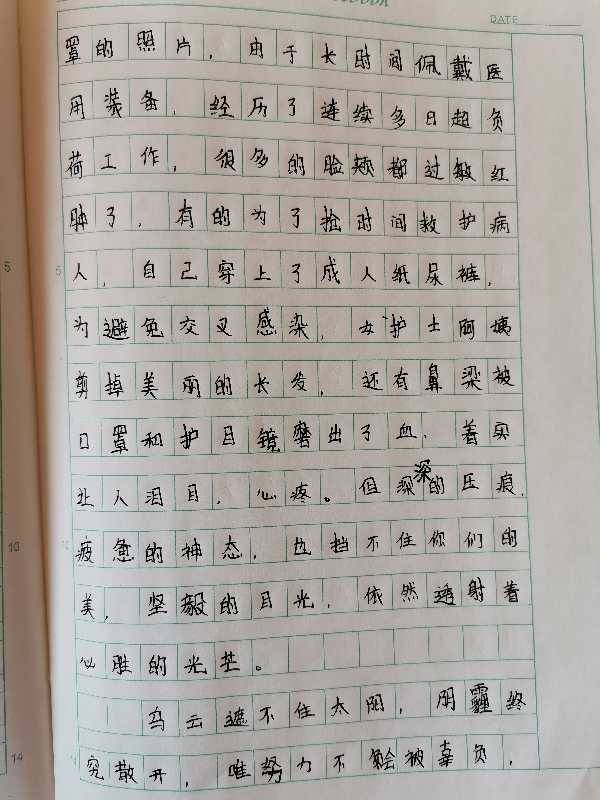 DATE
罩的照片，由于长时间佩戴医
用装备，经历了连续多日超负
荷工作，很多的脸颊都过敏红
肿了，有的为了抢时间救护病
人，自己穿上了成人纸尿裤，
为避免交叉感染，女护士阿姨
剪掉美丽的长发，还有鼻梁被
口罩和护目镜磨出了血，着实
让人泪目，心疼。但深深的压痕，
疲惫的神态，也挡不住你们的
美，坚毅的目光，依然透射着
必胜的光芒。
乌云遮不住太阳，阴霾终
究散开，唯努力不会被辜负，
5
5
10
14